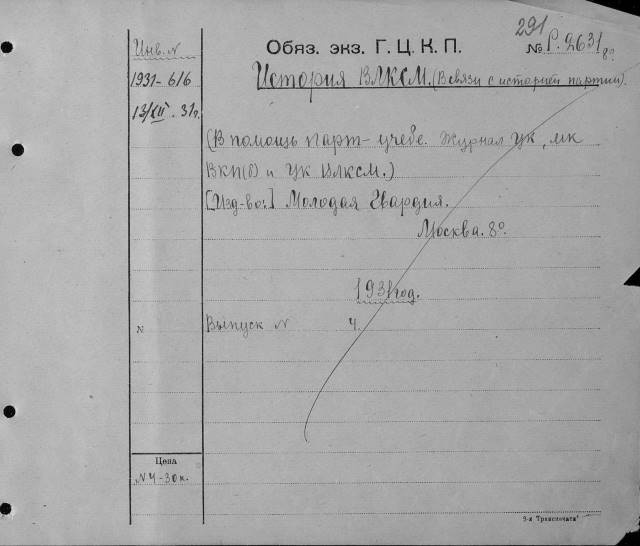 291
Инв. N
Обяз. экз. Г. Ц. К. П.
№ Р. 2631/8°
1931-616
История ВЛКСМ. (В связи с историей партии).
13/XII. 31г.
(В помощь парт-учебе. Журнал ЦК, МК
ВКП(б) и ЦК ВЛКСМ.)
[Изд-во:] Молодая Гвардия.
Москва. 8°.
1931 год.
N
Выпуск N 4.
Цена
N 4-30к.
3-я "Транспечать"